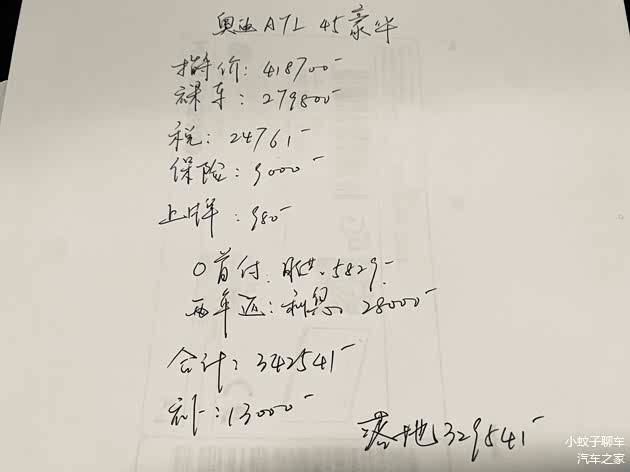 奥迪A7L 45豪华
指导价:418700-
裸车:279800-
税:24761-
保险:9000-
上牌:980-
0首付.月供.5829-
两年还:利息.28000-
合计:342541-
补:13000-
落地329541-
小蚊子聊车
汽车之家